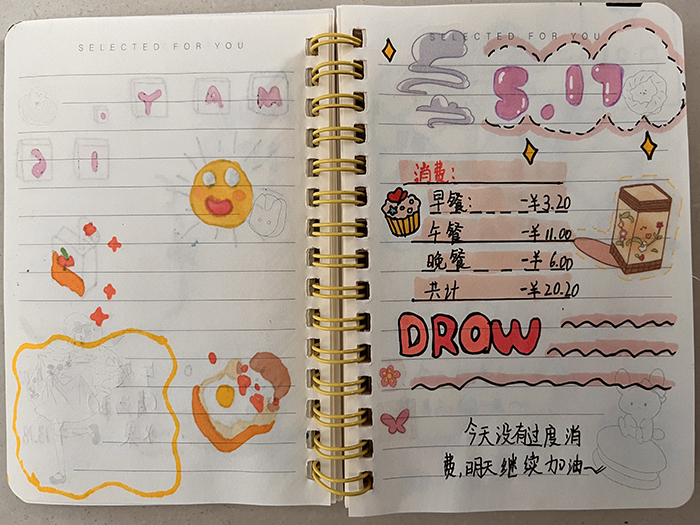 SELECTED FOR YOU
SELECTED FOR YOU
5.17
消费:
早餐: -¥3.20
午餐 -¥11.00
晚餐 -¥6.00
共计 -¥20.20
DROW
今天没有过度消
费,明天继续加油~